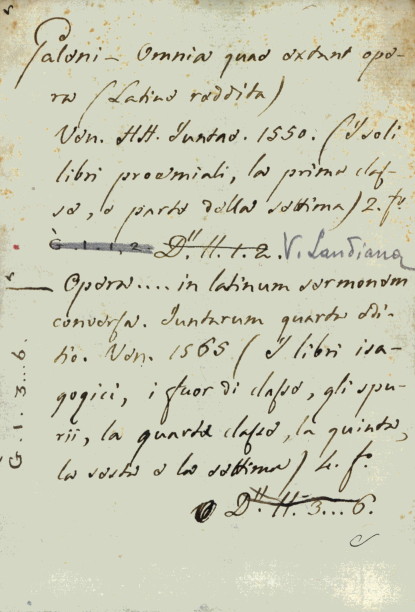 Galeni - Omnia quae extant ope-
ra (Latine reddita)
Ven. HH. Juntae. 1550. (I soli
libri proemiali, la prima claf-
se, e parte della settima) 2. fo.
G. 1. 1. 2. D." H. 1. 2. V. Landiana
Opera.... in latinum sermonem
conversa. Juntarum quarta edi-
tio. Ven. 1565 (I libri isa-
gogici, i fuor di classe, gli spu-
rii, la quarta classe, la quinta,
la sesta e la settima) 4. fo.
D." H. 3... 6.
G. 1. 3... 6.